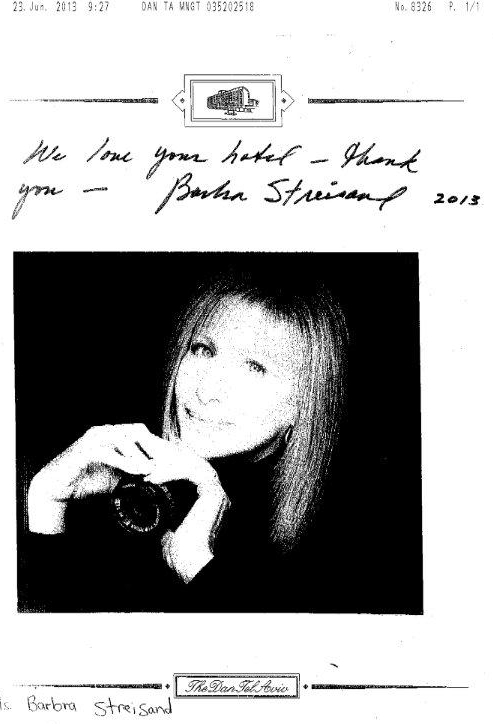 23. Jun. 2013 9:27 DAN TA MNGT 035202518 No. 8326 P. 1/1
We love your hotel – thank
you – Barbra Streisand 2013
The Dan Tel Aviv
s. Barbra Streisand